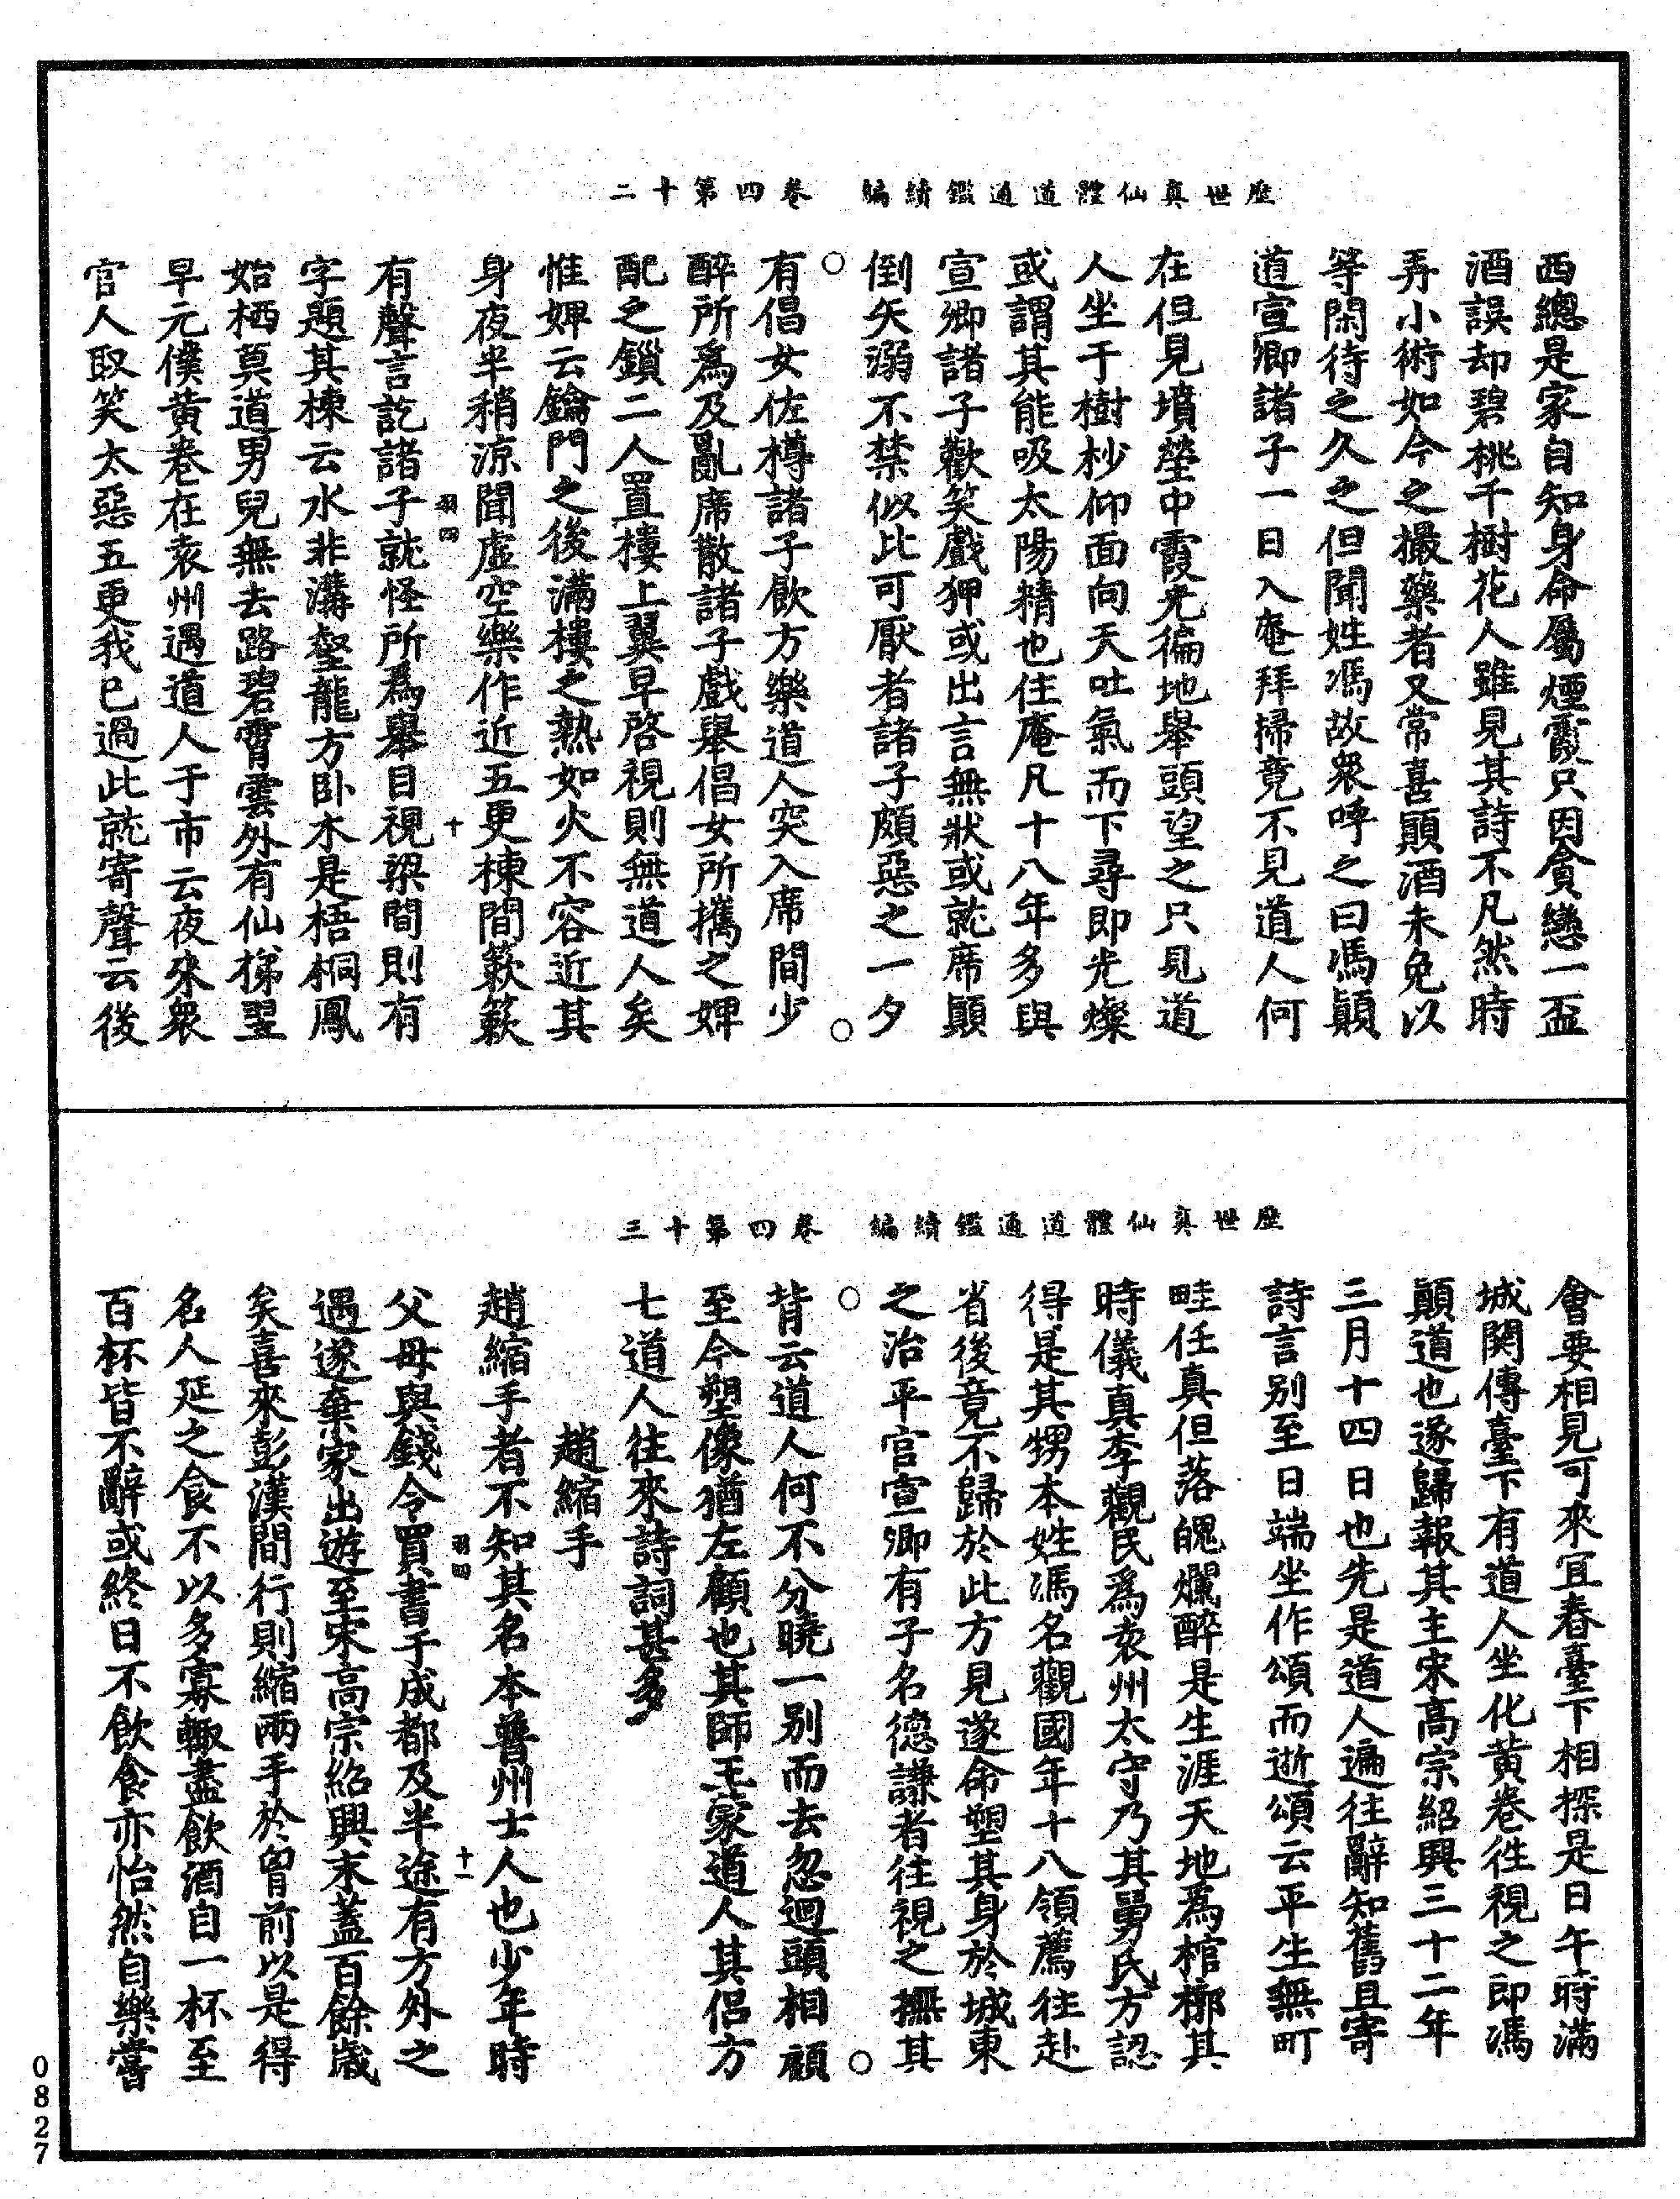 歷世真仙體道通鑑續編　卷四第十二
西總是家自知身命屬煙霞只因貪戀一盃
酒誤却碧桃千樹花人雖見其詩不凡然時
弄小術如今之撮藥者又常喜顛酒未免以
等閑待之久之但聞姓馮故衆呼之曰馮顛
道宣卿諸子一日入庵拜掃竟不見道人何
在但見墳塋中霞光徧地舉頭望之只見道
人坐于樹杪仰面向天吐氣而下尋即光燦
或謂其能吸太陽精也住庵凡十八年多與
宣卿諸子歡笑戲狎或出言無狀或就席顛
倒矢溺不禁似此可厭者諸子頗惡之一夕
有倡女佐樽諸子飲方樂道人突入席間少
醉所爲及亂席散諸子戲舉倡女所攜之婢
配之鎖二人置樓上翼早啓視則無道人矣
惟婢云鑰門之後滿樓之熱如火不容近其
身夜半稍涼聞虛空樂作近五更棟間簌簌
羽四　十
有聲言訖諸子就怪所爲舉目視梁間則有
字題其棟云水非溝壑龍方卧木是梧桐鳳
始栖莫道男兒無去路碧霄雲外有仙梯翌
早元僕黃卷在袁州遇道人于市云夜來衆
官人取笑太惡五更我已過此就寄聲云後
歷世真仙體道通鑑續編　卷四第十三
會要相見可來宜春臺下相探是日午時滿
城関傳臺下有道人坐化黃卷徃視之即馮
顛道也遂歸報其主宋高宗紹興三十二年
三月十四日也先是道人遍往辭知舊且寄
詩言别至日端坐作頌而逝頌云平生無町
畦任真但落魄爛醉是生涯天地爲棺槨其
時儀真李觀民爲袁州太守乃其舅氏方認
得是其甥本姓馮名觀國年十八領薦往赴
省後竟不歸於此方見遂命塑其身於城東
之治平官宣卿有子名德謙者往視之撫其
背云道人何不分曉一别而去忽迴頭相顧
至今塑像猶左顧也其師王蒙道人其侶方
七道人往來詩詞甚多
趙縮手
趙縮手者不知其名本普州士人也少年時
羽四　十一
父母與錢令買書于成都及半途有方外之
遇遂棄家出遊至宋高宗紹興末蓋百餘歲
矣喜來彭漢間行則縮兩手於胷前以是得
名人延之食不以多寡輙盡飲酒自一杯至
百杯皆不辭或終日不飲食亦怡然自樂嘗
0827